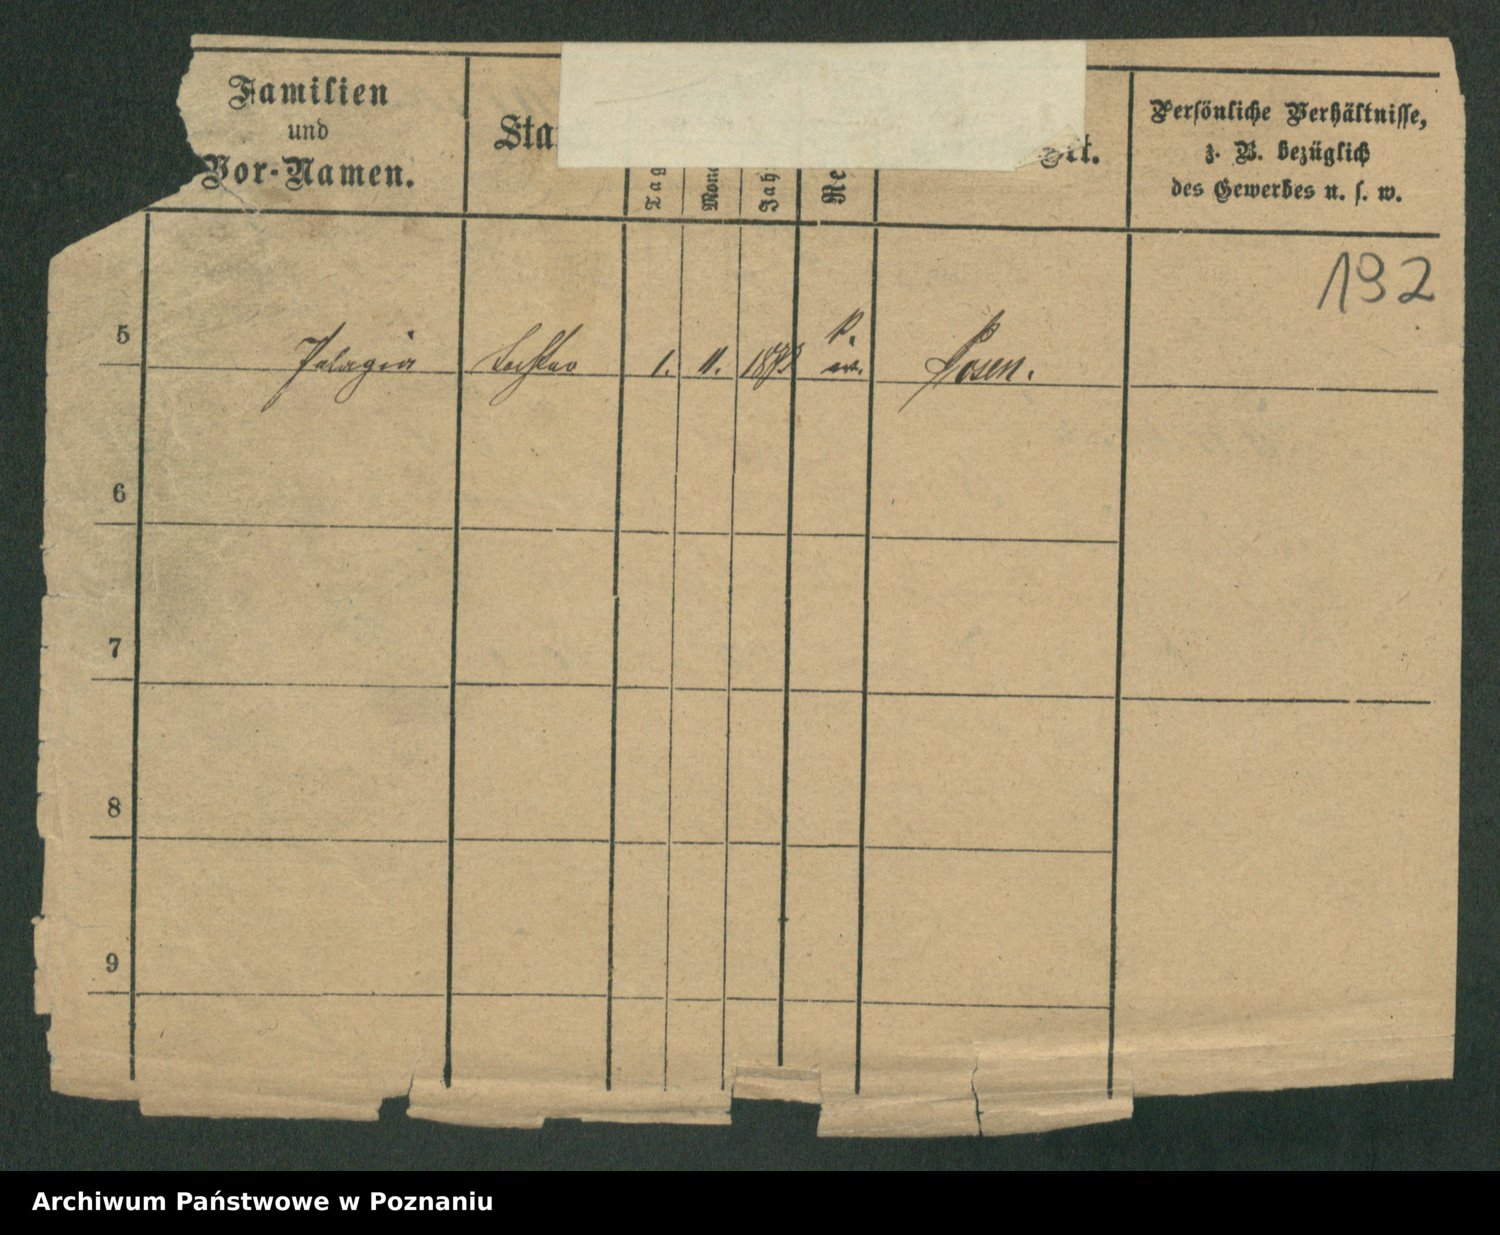 Familien
und
Vor-Namen.
Sta
Tag
Mon
Jah
Re
Ort.
Persönliche Verhältnisse,
z. B. bezüglich
des Gewerbes u. s. w.
192
5
Pelagia Tochter 1. 11. 1873 k. w. Posen.
6
7
8
9
Archiwum Państwowe w Poznaniu